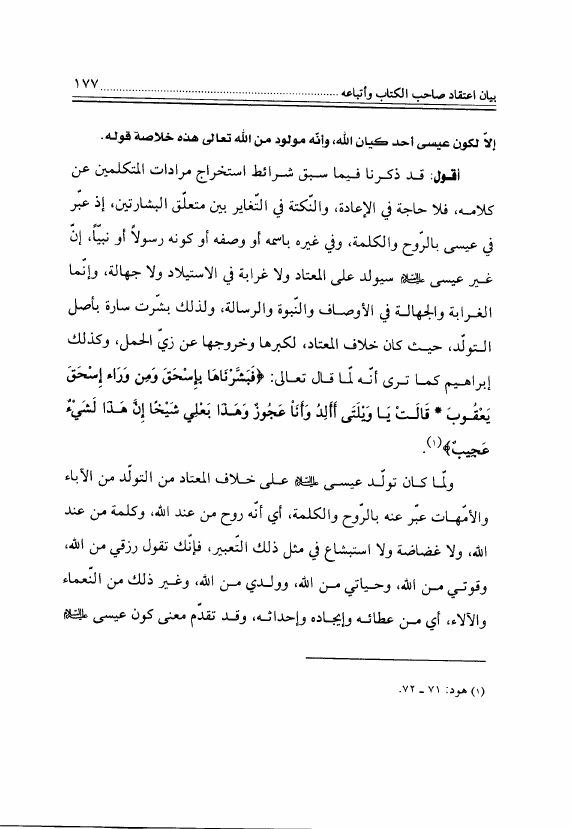 بيان اعتقاد صاحب الكتاب وأتباعه ........................................................ ١٧٧
إلاّ لكون عيسى أحد كيان الله، وأنّه مولود من الله تعالى هذه خلاصة قوله.
أقول: قد ذكرنا فيما سبق شرائط استخراج مرادات المتكلمين عن
كلامه، فلا حاجة في الإعادة، والنّكتة في التّغاير بين متعلّق البشارتين، إذ عبّر
في عيسى بالرّوح والكلمة، وفي غيره باسمه أو وصفه أو كونه رسولاً أو نبيّاً، إنّ
غير عيسى عليه السلام سيولد على المعتاد ولا غرابة في الاستيلاد ولا جهالة، وإنّما
الغرابة والجهالة في الأوصاف والنّبوة والرسالة، ولذلك بشّرت سارة بأصل
التولّد، حيث كان خلاف المعتاد، لكبرها وخروجها عن زيّ الحمل، وكذلك
إبراهيم كما ترى أنّه لمّا قال تعالى: ﴿فَبَشَّرْنَاهَا بِإِسْحَقَ وَمِن وَرَاء إِسْحَقَ
يَعْقُوبَ * قَالَتْ يَا وَيْلَتَى أَأَلِدُ وَأَنَاْ عَجُوزٌ وَهَذَا بَعْلِي شَيْخًا إِنَّ هَذَا لَشَيْءٌ
عَجِيبٌ﴾(١).
ولمّا كان تولّد عيسى عليه السلام على خلاف المعتاد من التولّد من الآباء
والأمّهات عبّر عنه بالرّوح والكلمة، أي أنّه روح من عند الله، وكلمة من عند
الله، ولا غضاضة ولا استبشاع في مثل ذلك التّعبير، فإنّك تقول رزقي من الله،
وقوتي من الله، وحياتي من الله، وولدي من الله، وغير ذلك من النّعماء
والآلاء، أي من عطائه وإيجاده وإحداثه، وقد تقدّم معنى كون عيسى عليه السلام
(١) هود: ٧١ ـ ٧٢.